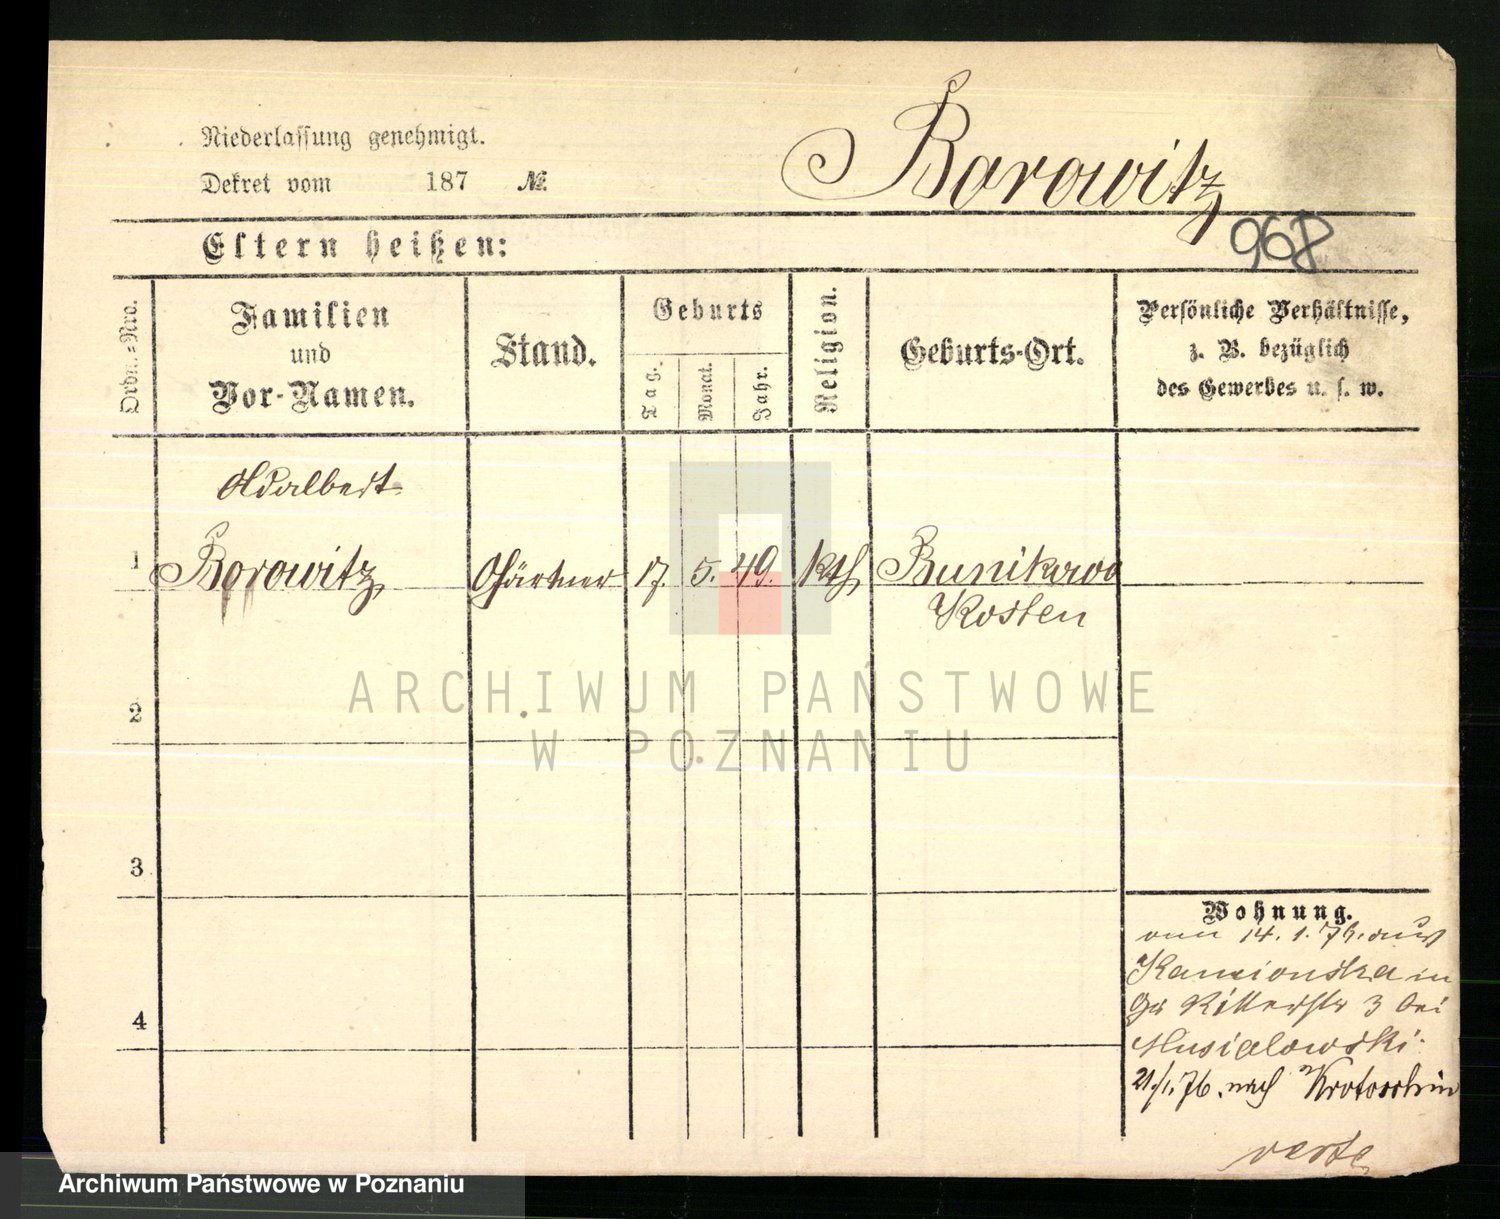 Niederlassung genehmigt.
Dekret vom 187 №
Borowitz
968
Eltern heißen:
Ordn.-Nro.
Familien
und
Vor-Namen.
Stand.
Geburts
Tag.
Monat.
Jahr.
Religion.
Geburts-Ort.
Persönliche Verhältnisse,
z. B. bezüglich
des Gewerbes u. s. w.
Adalbert
1 Borowitz Gärtner 17. 5. 49. kth Bunikowo
Kosten
2
3
4
Wohnung.
vom 14. 1. 76. aus
Kamionska in
Gr Ritterstr 3 bei
Musialowski.
21/1.76. nach Krotoschin
verte
ARCHIWUM PAŃSTWOWE
W POZNANIU
Archiwum Państwowe w Poznaniu